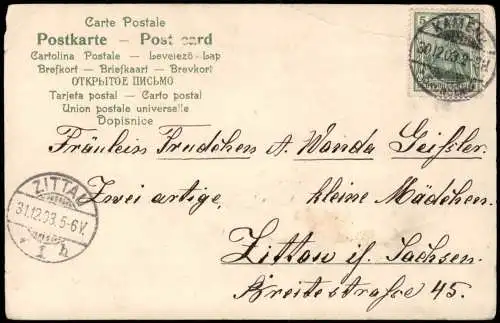 Carte Postale
Postkarte — Post card
Cartolina Postale — Levelező-Lap
Brefkort — Briefkaart — Brevkort
ОТКРЫТОЕ ПИСЬМО
Tarjeta postal — Carto postal
Union postale universelle
Dopisnice
5
KAMEN
30.12.03.
Fräulein Trudchen u. Wanda Geißler
Zwei artige, kleine Mädchen.
ZITTAU
31.12.03.5-6V.
1 h
Zittau i/. Sachsen.
Breitestraße 45.